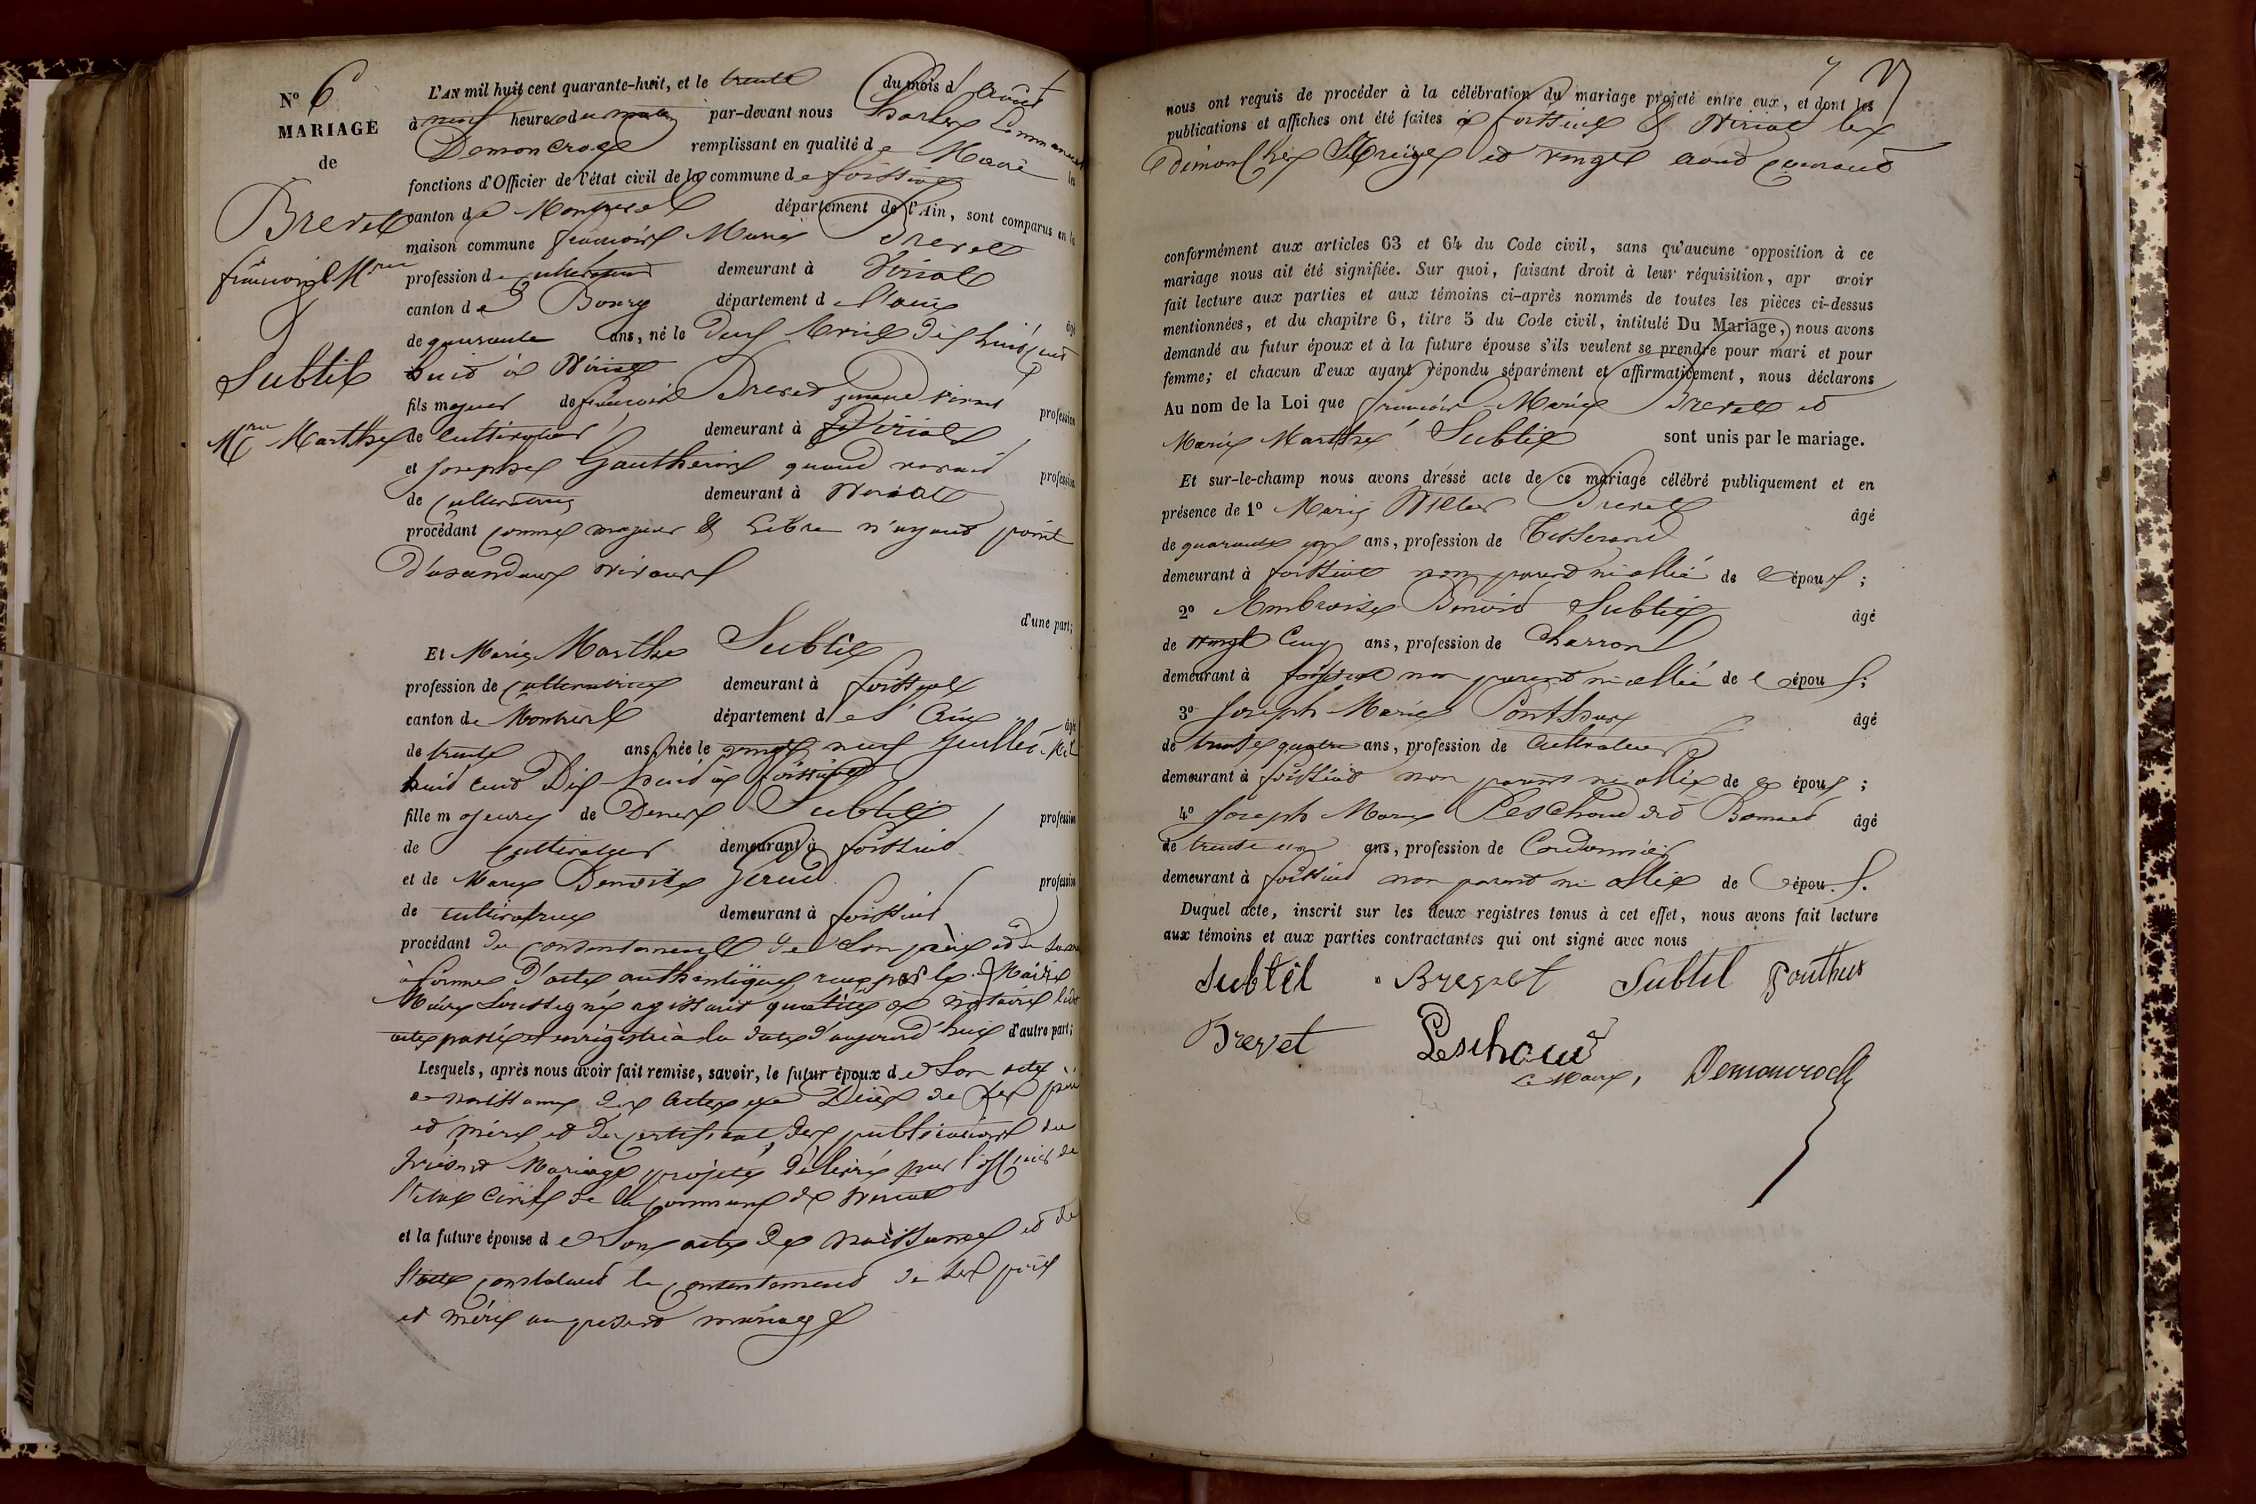 N° 6
MARIAGE
de
Brevet
françois Mie
Subtil
Mie Marthe
L'AN mil huit cent quarante-huit, et le trente du mois d'août
à neuf heures du matin par-devant nous Charles Emmanuel
Demoncroc remplissant en qualité de Maire les
fonctions d'Officier de l'état civil de la commune de foissiat
canton de Montrevel département de l'Ain, sont comparus en la
maison commune françois Marie Brevet
profession de cultivateur demeurant à Viriat
canton de Bourg département de l'ain âgé
de quarante ans, né le deux Avril dix huit cent
huit à Viriat
fils majeur de françois Brevet quand vivait profession
de cultivateur demeurant à Viriat
et josephe Gautheron quand vivait profession
de cultivatrice demeurant à Viriat
procédant comme majeur & Libre n'ayant point
d'ascendans vivans
d'une part;
Et Marie Marthe Subtil
profession de cultivatrice demeurant à foissiat
canton de Montrevel département de l'Ain âgée
de trente ans, née le vingt neuf Juillet Mil
huit cent Dix huit à foissiat
fille majeure de Denis Subtil profession
de cultivateur demeurant à foissiat
et de Marie Benoite profession
de cultivatrice demeurant à foissiat
procédant du consentement de Son père et de sa mère
à forme d'acte authentique reçu par le Maire
Maire Soussigné agissant qualité de notaire ledit
acte passé et enregistré à la date d'aujourd'hui d'autre part;
Lesquels, après nous avoir fait remise, savoir, le futur époux de Son acte
de naissance des actes de Décès de Ses père
et mère et du certificat des publications du
présent Mariage projeté délivré par l'officier de
l'état Civil de la commune de Viriat
et la future épouse de Son acte de naissance et de
l'acte constatant le consentement de Ses père
et mère au présent mariage
7
nous ont requis de procéder à la célébration du mariage projeté entre eux, et dont les
publications et affiches ont été faites à foissiat & Viriat les
dimanches Treize et vingt août courant
conformément aux articles 63 et 64 du Code civil, sans qu'aucune opposition à ce
mariage nous ait été signifiée. Sur quoi, faisant droit à leur réquisition, apr avoir
fait lecture aux parties et aux témoins ci-après nommés de toutes les pièces ci-dessus
mentionnées, et du chapitre 6, titre 5 du Code civil, intitulé Du Mariage, nous avons
demandé au futur époux et à la future épouse s'ils veulent se prendre pour mari et pour
femme; et chacun d'eux ayant répondu séparément et affirmativement, nous déclarons
Au nom de la Loi que françois Marie Brevet et
Marie Marthe Subtil sont unis par le mariage.
Et sur-le-champ nous avons dressé acte de ce mariage célébré publiquement et en
présence de 1° Marie Brevet âgé
de quarante ans, profession de Tisserand
demeurant à foissiat non parent ni allié de l'époux;
2° Ambroise Benoit Subtil âgé
de vingt Cinq ans, profession de Charron
demeurant à foissiat non parent ni allié de l'époux;
3° Joseph Marie Ponthus âgé
de trente quatre ans, profession de cultivateur
demeurant à foissiat non parent ni allié de l'époux;
4° Joseph Marie Peschoud âgé
de trente ans, profession de Cordonnier
demeurant à foissiat non parent ni allié de l'époux.
Duquel acte, inscrit sur les deux registres tenus à cet effet, nous avons fait lecture
aux témoins et aux parties contractantes qui ont signé avec nous
Subtil Brevet Subtil Ponthus
Brevet Peschoud
Le Maire, Demoncroc